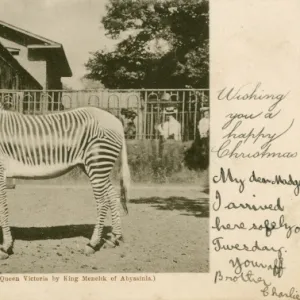 Wishing
you a
happy
Christmas
My dear Madge
I arrived
here safely on
Tuesday.
Your aff
Brother
Charlie
Queen Victoria by King Menelik of Abyssinia.)